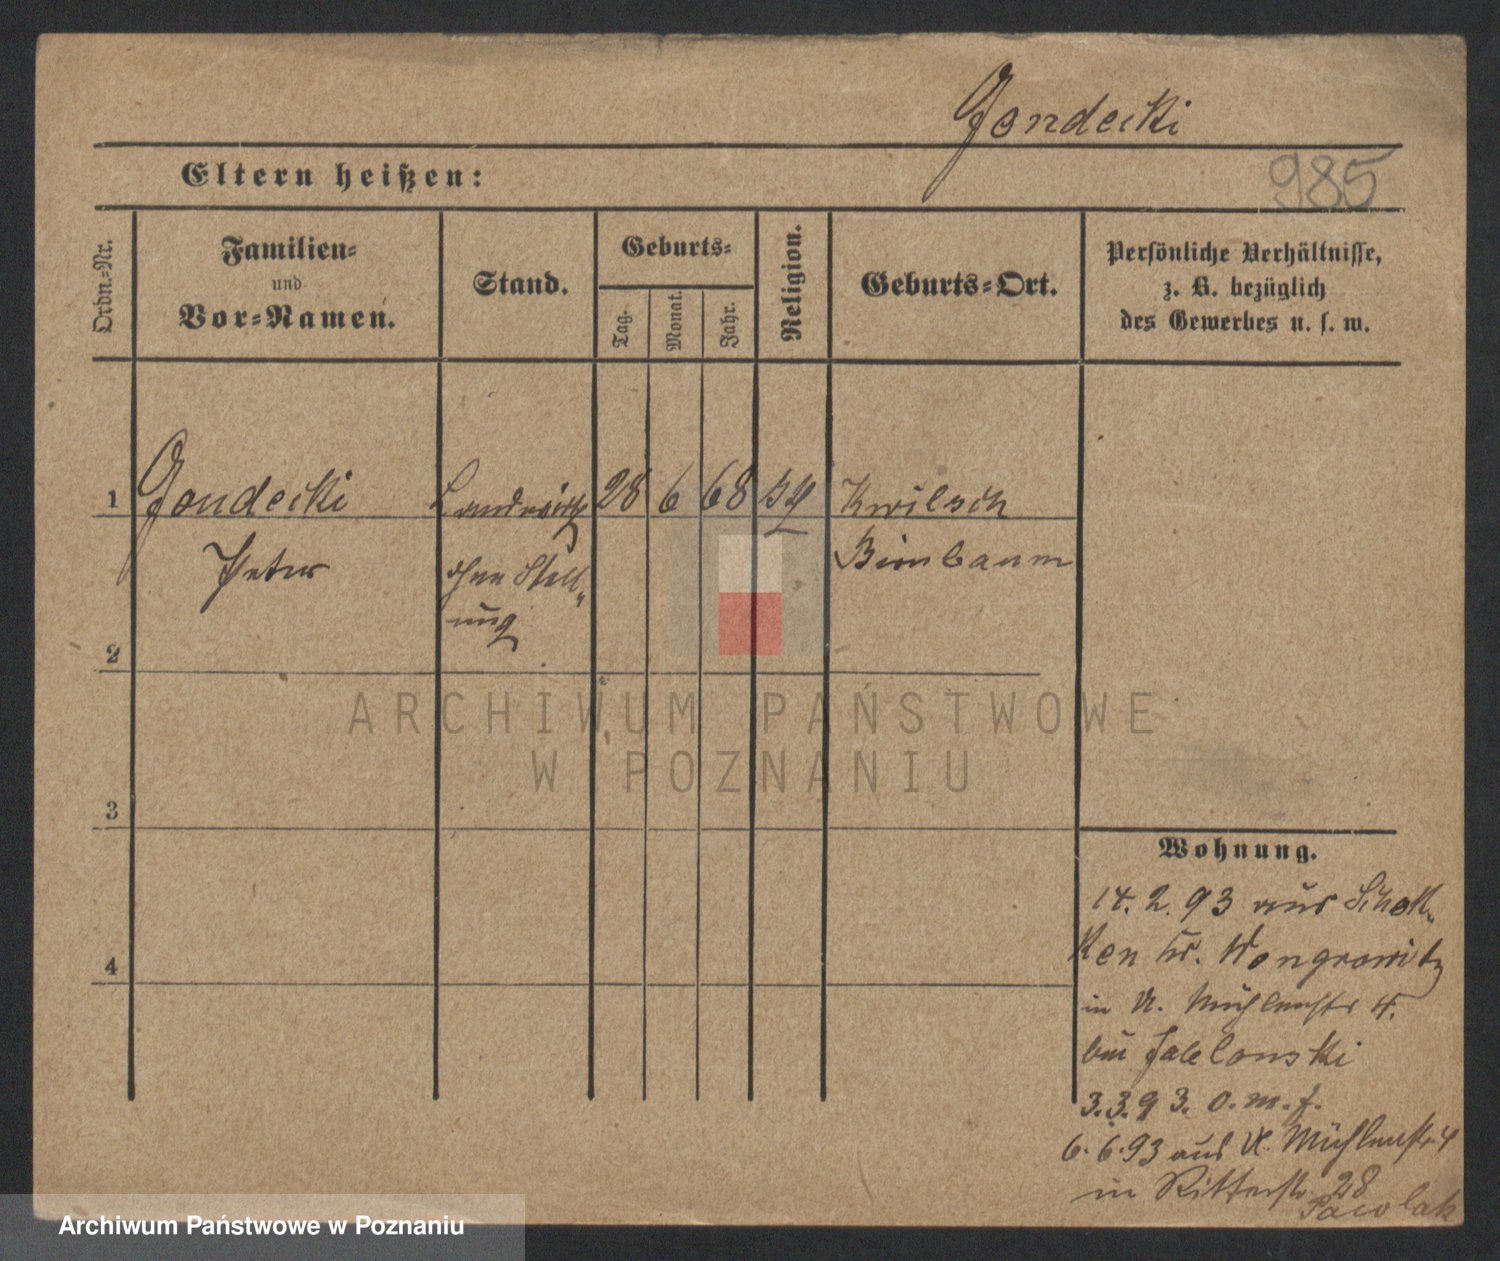 Gondecki
985
Eltern heißen:
Ordn.-Nr.
Familien-
und
Vor-Namen.
Stand.
Geburts-
Tag.
Monat.
Jahr.
Religion.
Geburts-Ort.
Persönliche Verhältnisse,
z. B. bezüglich
des Gewerbes u. s. w.
1
Gondecki
Landwirth
28
6
68
Kwilsch
Peter
ohne Stell-
ung
Birnbaum
2
3
4
Wohnung.
14. 2. 93 aus Schok-
ken Kr. Wongrowitz
in U. Mühlenstr 4.
bei Jablonski
3. 3. 93. o. m. f.
6. 6. 93 aus U. Mühlenstr. 4
in Ritterstr. 28
Pawlak
ARCHIWUM PAŃSTWOWE
W POZNANIU
Archiwum Państwowe w Poznaniu